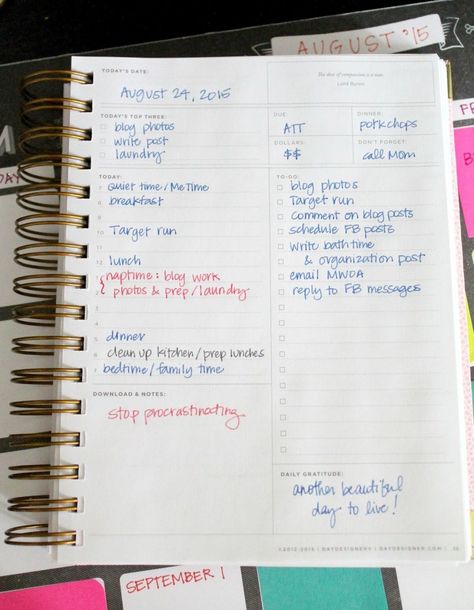 AUGUST '15
TODAY'S DATE:
August 24, 2015
The dew of compassion is a tear.
Lord Byron
TODAY'S TOP THREE:
blog photos
write post
laundry
DUE:
ATT
DINNER:
porkchops
DOLLARS:
$$
DON'T FORGET:
call Mom
TODAY:
7 Quiet time/Me Time
8 breakfast
9
10 Target run
11
12 lunch
1 naptime: blog work
2 photos & prep/laundry
3
4
5 dinner
6 clean up kitchen/prep lunches
7 bedtime/family time
TO-DO:
blog photos
Target run
comment on blog posts
schedule FB posts
write bathtime
& organization post
email MWDA
reply to FB messages
DOWNLOAD & NOTES:
stop procrastinating
DAILY GRATITUDE:
another beautiful
day to live!
©2012-2015 | DAYDESIGNER® | DAYDESIGNER.COM |
SEPTEMBER 1